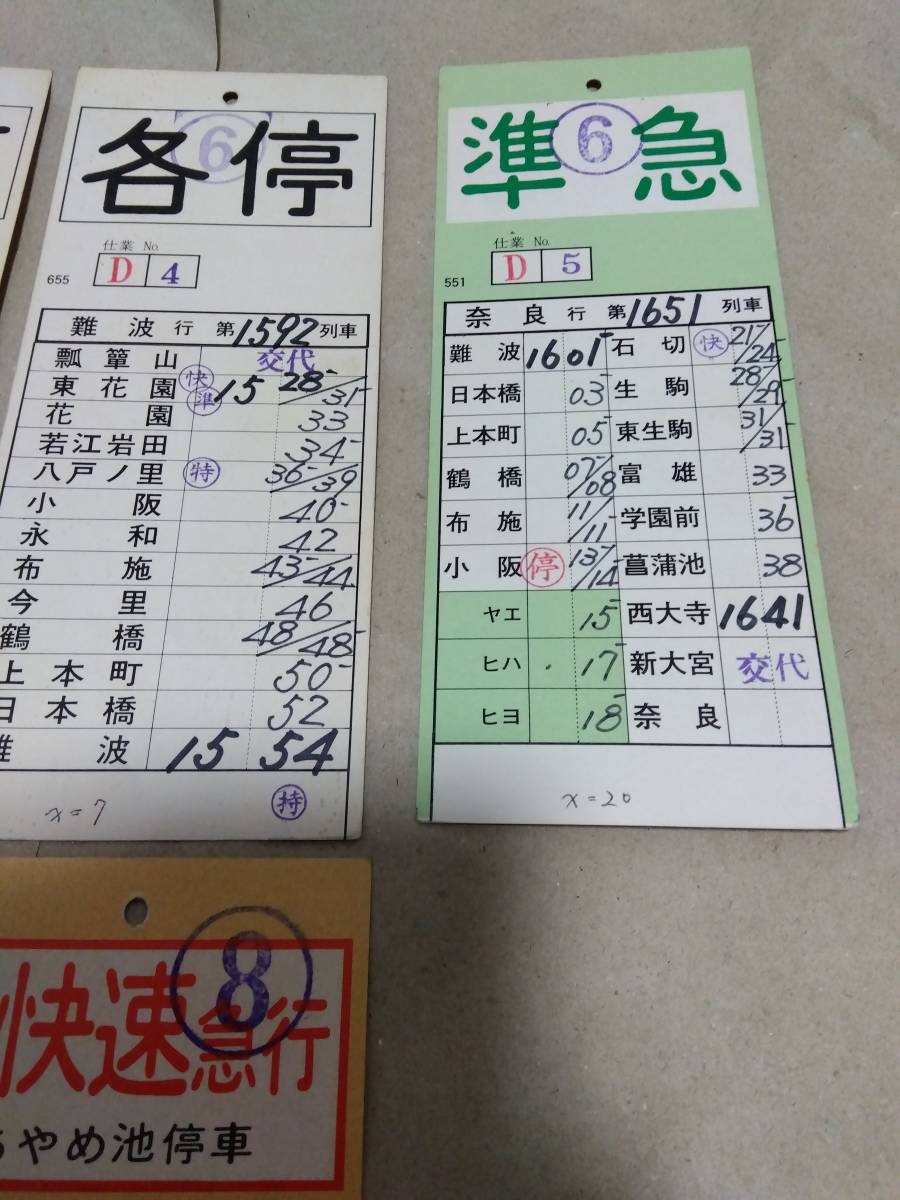 各停
6
仕業 No.
D 4
655
難波行 第1592列車
瓢箪山 交代
東花園 快 準 15 28-/31-
花園 33
若江岩田 34-
八戸ノ里 特 36-/39
小阪 40-
永和 42
布施 43-/44
今里 46
鶴橋 48/48-
上本町 50-
日本橋 52
難波 15 54
持
x=7
準急
6
仕業 No.
D 5
551
奈良行 第1651列車
難波 1601-
日本橋 03-
上本町 05
鶴橋 07-/08
布施 11/11
小阪 停 13-/14
ヤエ 15
ヒハ 17-
ヒヨ 18-
石切 快 21-/24
生駒 28-/29
東生駒 31/31
富雄 33
学園前 36-
菖蒲池 38
西大寺 1641
新大宮 交代
奈良
x=20
8
快速急行
やめ池停車